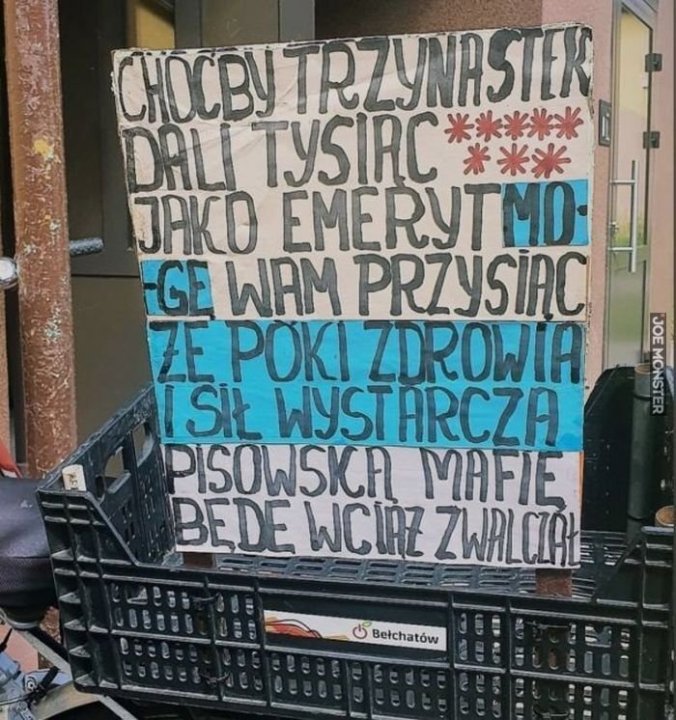 CHOĆBY TRZYNASTEK
DALI TYSIĄC *****
***
JAKO EMERYT MO-
-GĘ WAM PRZYSIĄC
ŻE PÓKI ZDROWIA
I SIŁ WYSTARCZA
PISOWSKĄ MAFIĘ
BĘDĘ WCIĄŻ ZWALCZAŁ
Bełchatów
JOE MONSTER